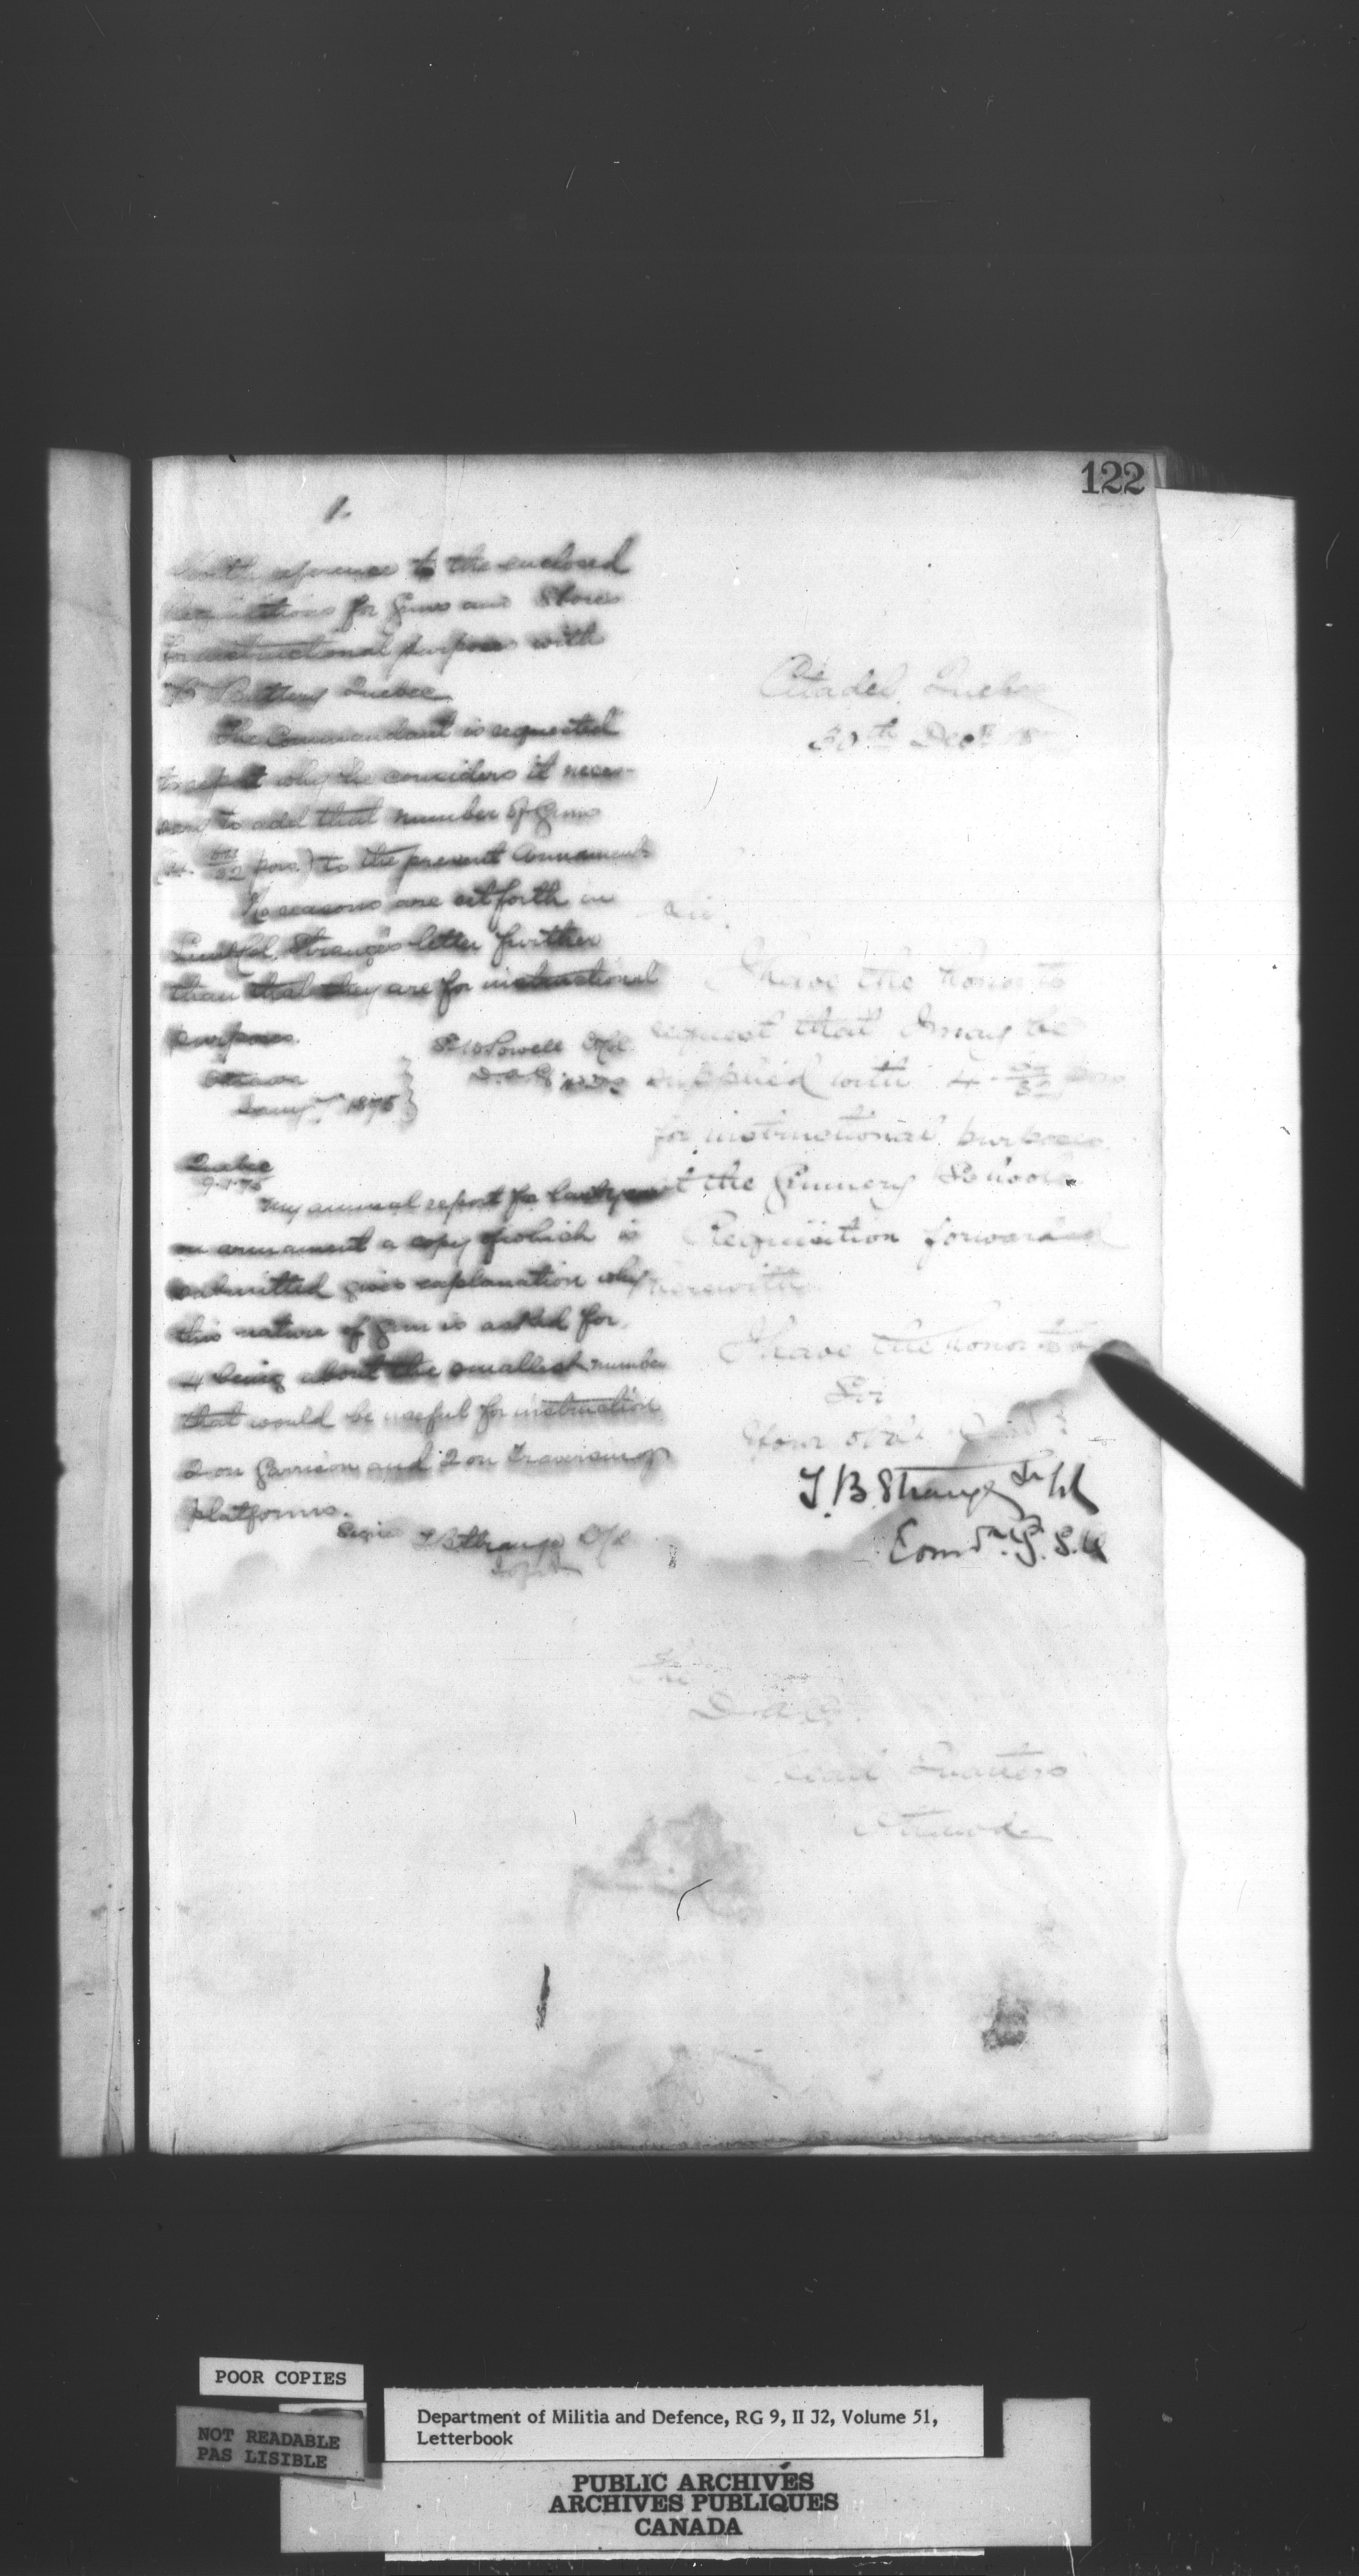 122
1.
With reference to the enclosed
requisitions for Guns and Stores
for instructional purposes with
"B" Battery Quebec
The Commandant is requested
to report why he considers it neces-
sary to add that number of Guns
(4- 64/32 pors.) to the present Armament
No reasons are set forth in
Lieut Col. Strange's letter further
than that they are for instructional
purposes.
P. W. Powell Col
D.A.G.
Ottawa
Jany 1875
Quebec
9-1-75
My annual report for last year
on armament a copy of which is
submitted gives explanation why
this nature of gun is asked for.
4 being about the smallest number
that would be useful for instruction
2 on Garrison and 2 on Traversing
platforms.
Signed T B Strange
Citadel, Quebec
30th Decr
Sir,
I have the honor to
request that I may be
supplied with 4- 64/32 pors
for instructional purposes
at the Gunnery Schools
Requisition forwarded
herewith
I have the honor to be
Sir
Your obdt
T. B. Strange Lt Col
Comdt. G. S. Q
The
D.A.G.
Head Quarters
Ottawa
POOR COPIES
NOT READABLE
PAS LISIBLE
Department of Militia and Defence, RG 9, II J2, Volume 51,
Letterbook
PUBLIC ARCHIVES
ARCHIVES PUBLIQUES
CANADA